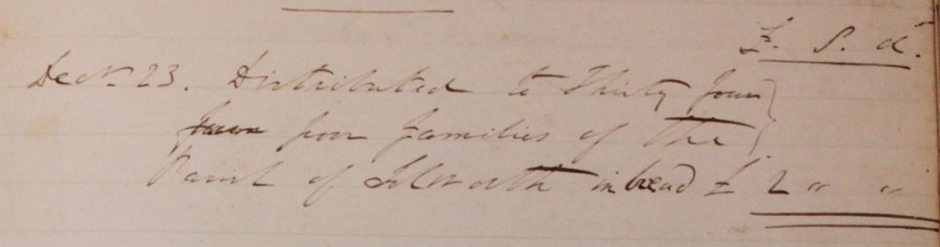 £. S. d.
Decr. 23. Distributed to Thirty four
poor families of the
Parish of in bread £ 2 " "